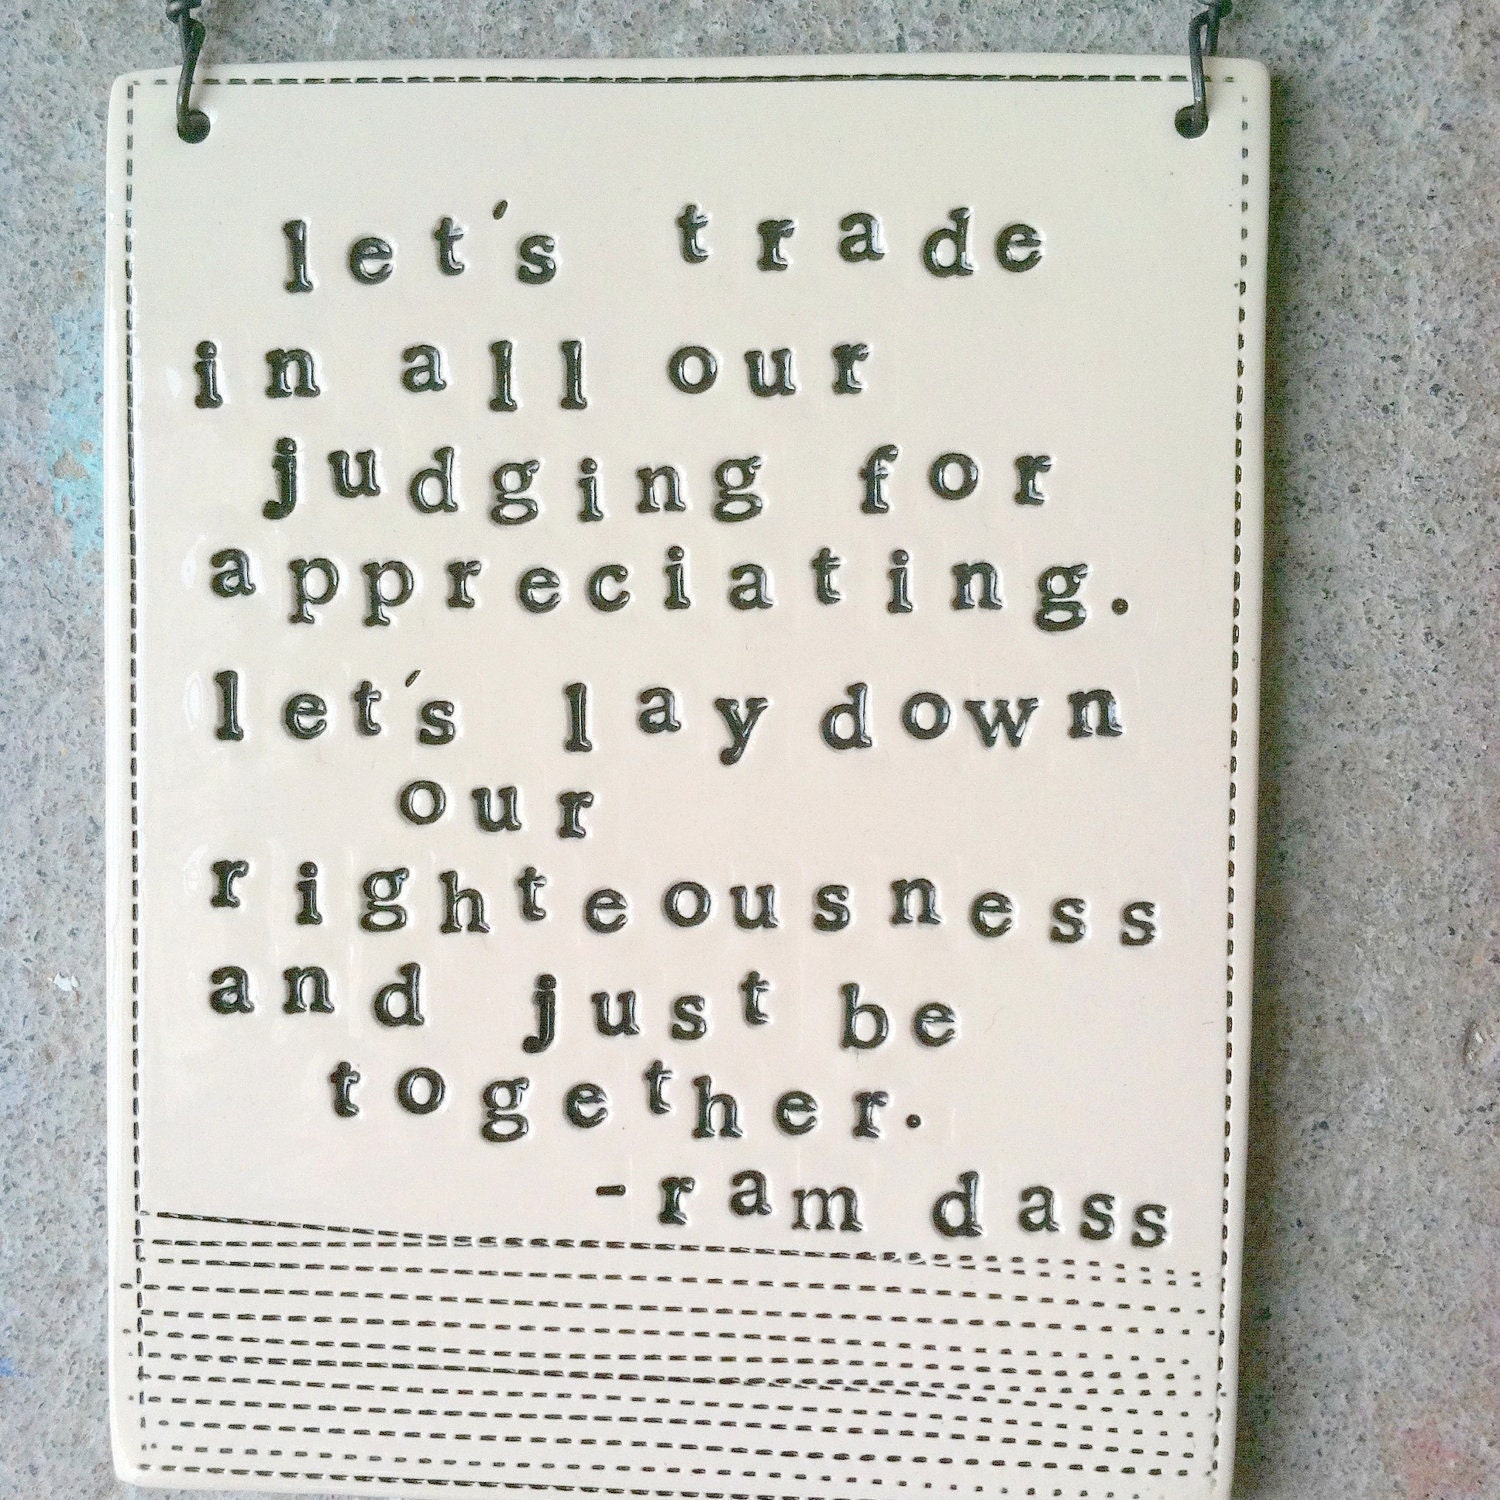 let's trade
in all our
judging for
appreciating.
let's lay down
our
righteousness
and just be
together.
-ram dass